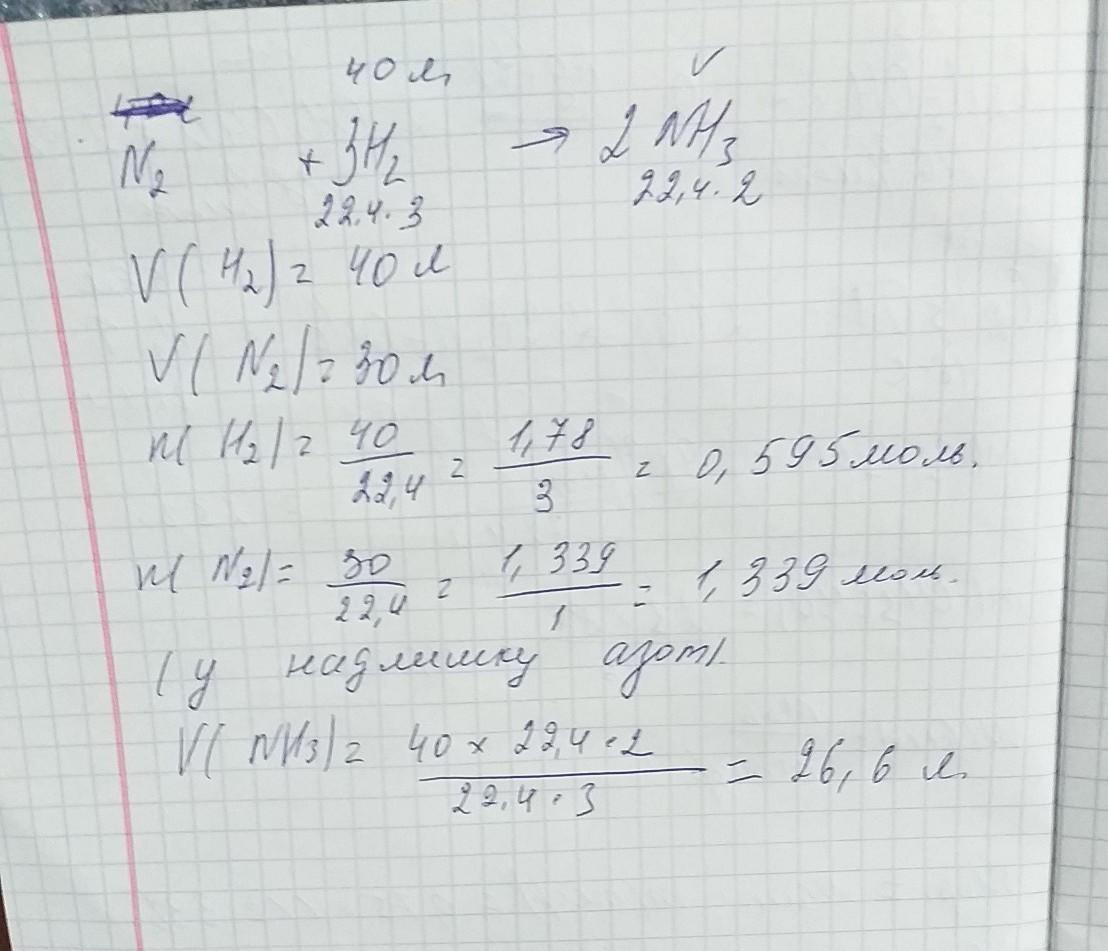 40 л V
N₂ + 3H₂ → 2 NH₃
22.4 · 3 22,4 · 2
V( H₂) = 40 л
V( N₂) = 30 л
n( H₂) = 40/22,4 = 1,78/3 = 0,595 моль.
n( N₂) = 30/22,4 = 1,339/1 = 1,339 моль.
( у надлишку азот).
V( NH₃) = 40 × 22,4 · 2/22.4 · 3 = 26,6 л